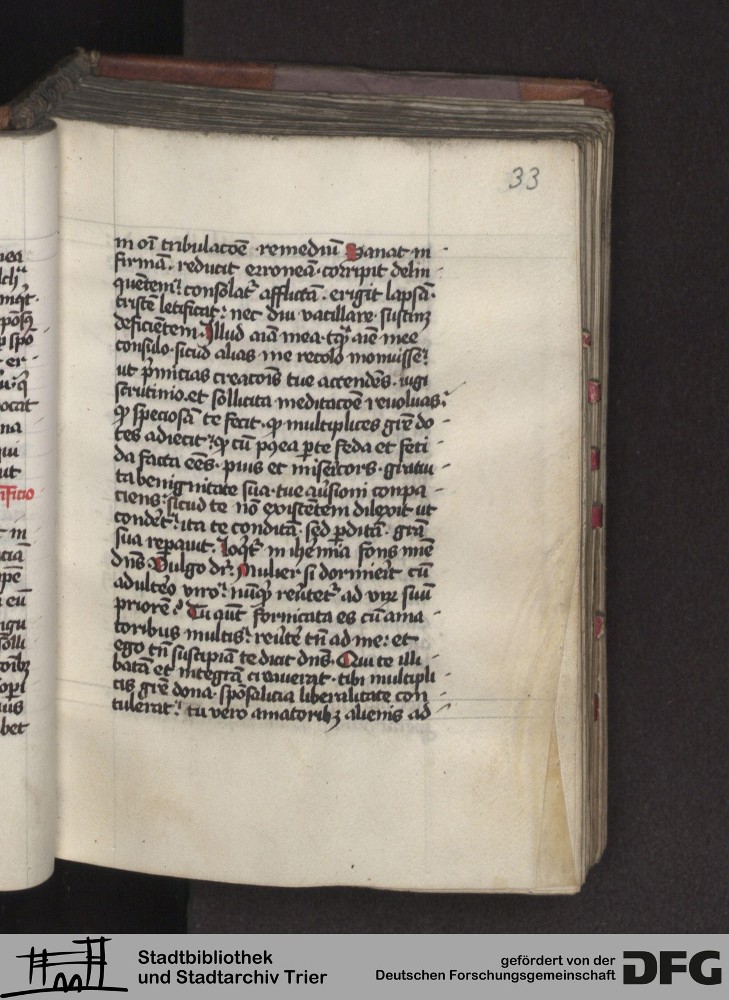 33
in oi tribulacōe remediū Sanat in
firmā. reducit erroneā. corripit delin
quētem: consolat̉ afflictā. erigit lapsā.
tristē letificat: nec diu vacillare sustinꝫ
deficiētem. Illud aiā mea. tqꝫ aiē mee
consulo. sicud alias me recolo monuisse:
ut p̄mitias creatoīs tue attendēs. iugi
scrutinio. et sollicita meditacōe reuoluas:
qꝫ speciosā te fecit. qꝫ multiplices grē do
tes adiecit: qꝫ cū pꝯea ꝑte feda et feti
da facta eēs. pius et misericors. gratui
ta benignitate sua. tue ausioni conpa
ciens: sicud te nō existētem dilexit ut
condēt̉: ita te conditā. sed ꝑditā. grā
sua reparauit. Loqt̉ in iheremia fons mīe
dn̄s Vulgo dr̄. Mulier si dormierit cū
adulteo viro: nūqꝫ reūtet̉ ad vir suū
priorē? Tu aūt fornicata es cū ama
toribus multis: reūtē tn̄ ad me: et
ego tn̄ suscipiā te dicit dn̄s. Qui te illi
batā et integrā creauerat. tibi multipli
cis grē dona. spōsalicia liberalitate con
tulerat: tu vero amatoribꝫ alienis ad
ificio
ocat
na
ut
bet
Stadtbibliothek
und Stadtarchiv Trier
gefördert von der
Deutschen Forschungsgemeinschaft
DFG